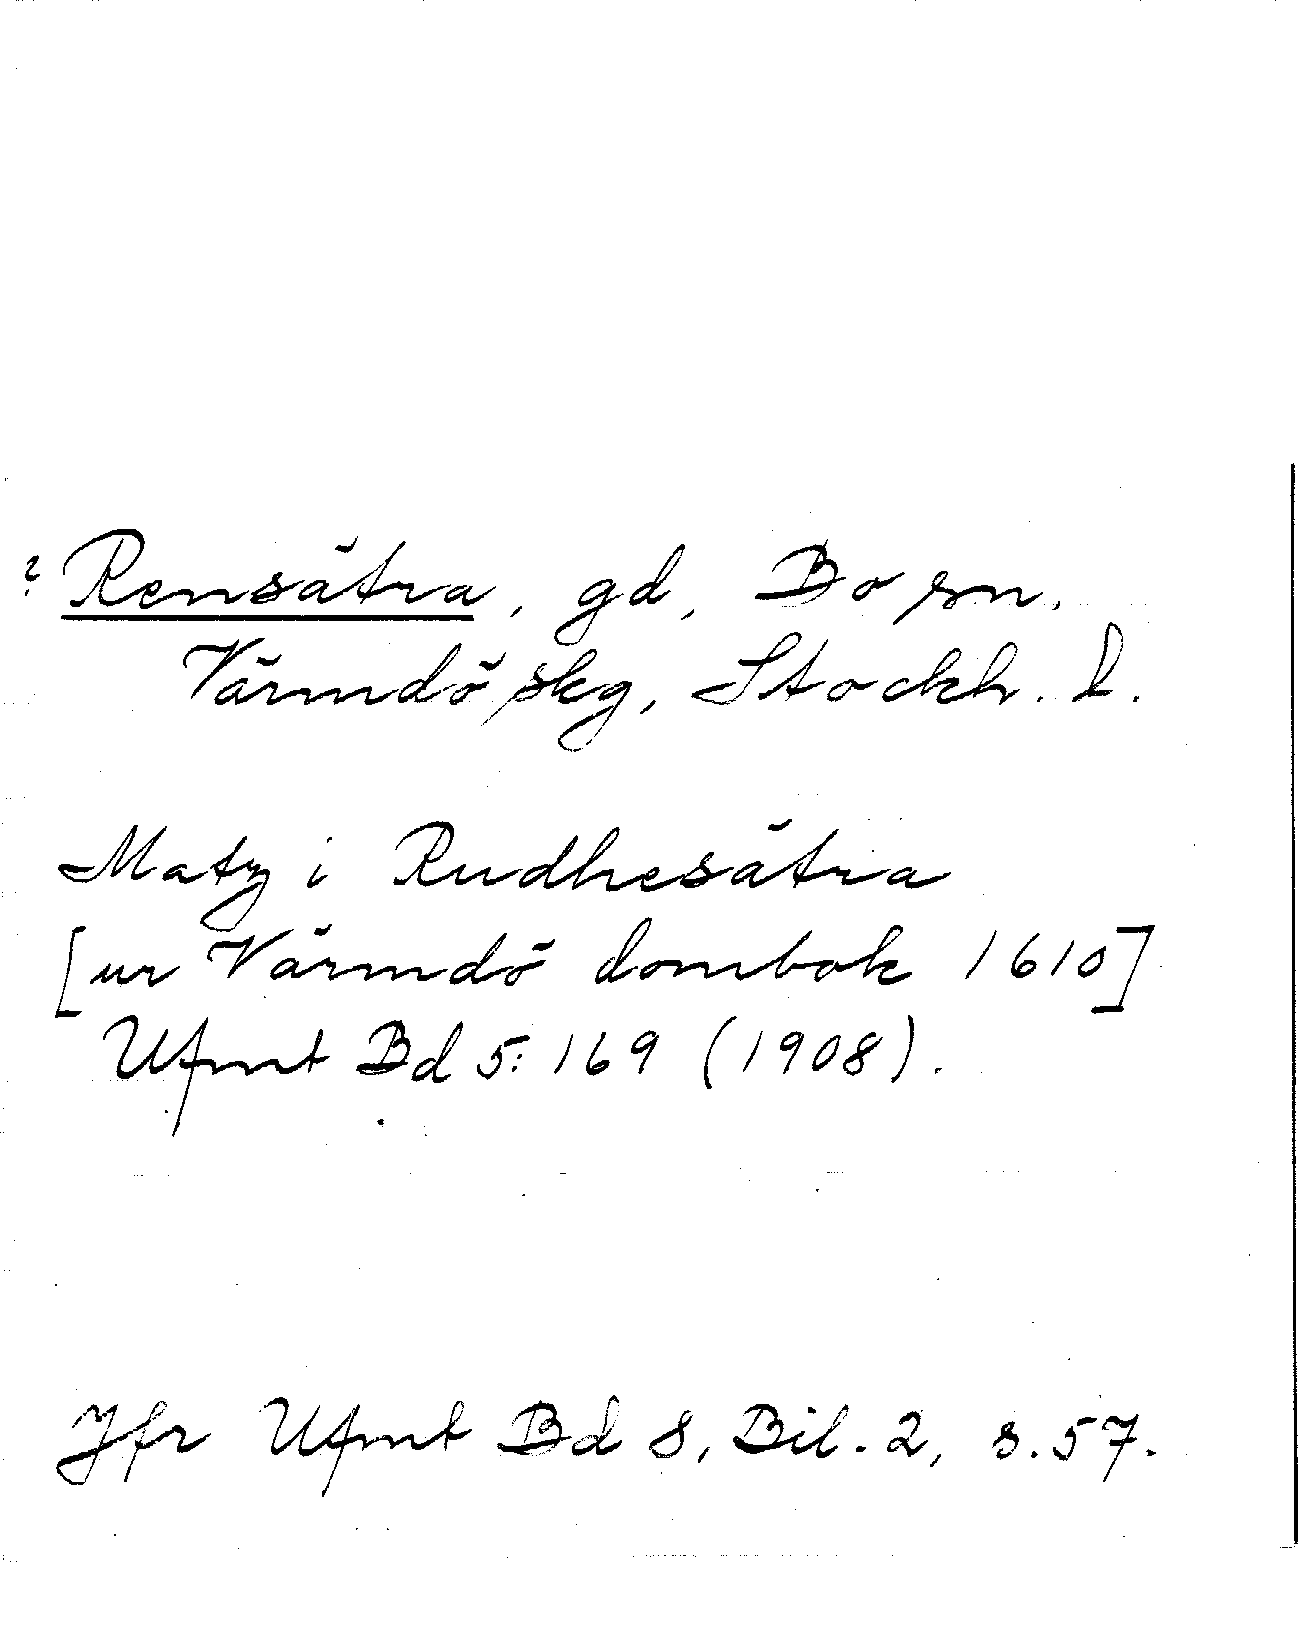 ? Rensätra, gd, Bo sn.
Värmdö skg, Stockh. l.
Matz i Rudhesätra
[ur Värmdö dombok 1610]
Ufmt Bd 5:169 (1908).
Jfr Ufmt Bd 8, Bil. 2, s. 57.